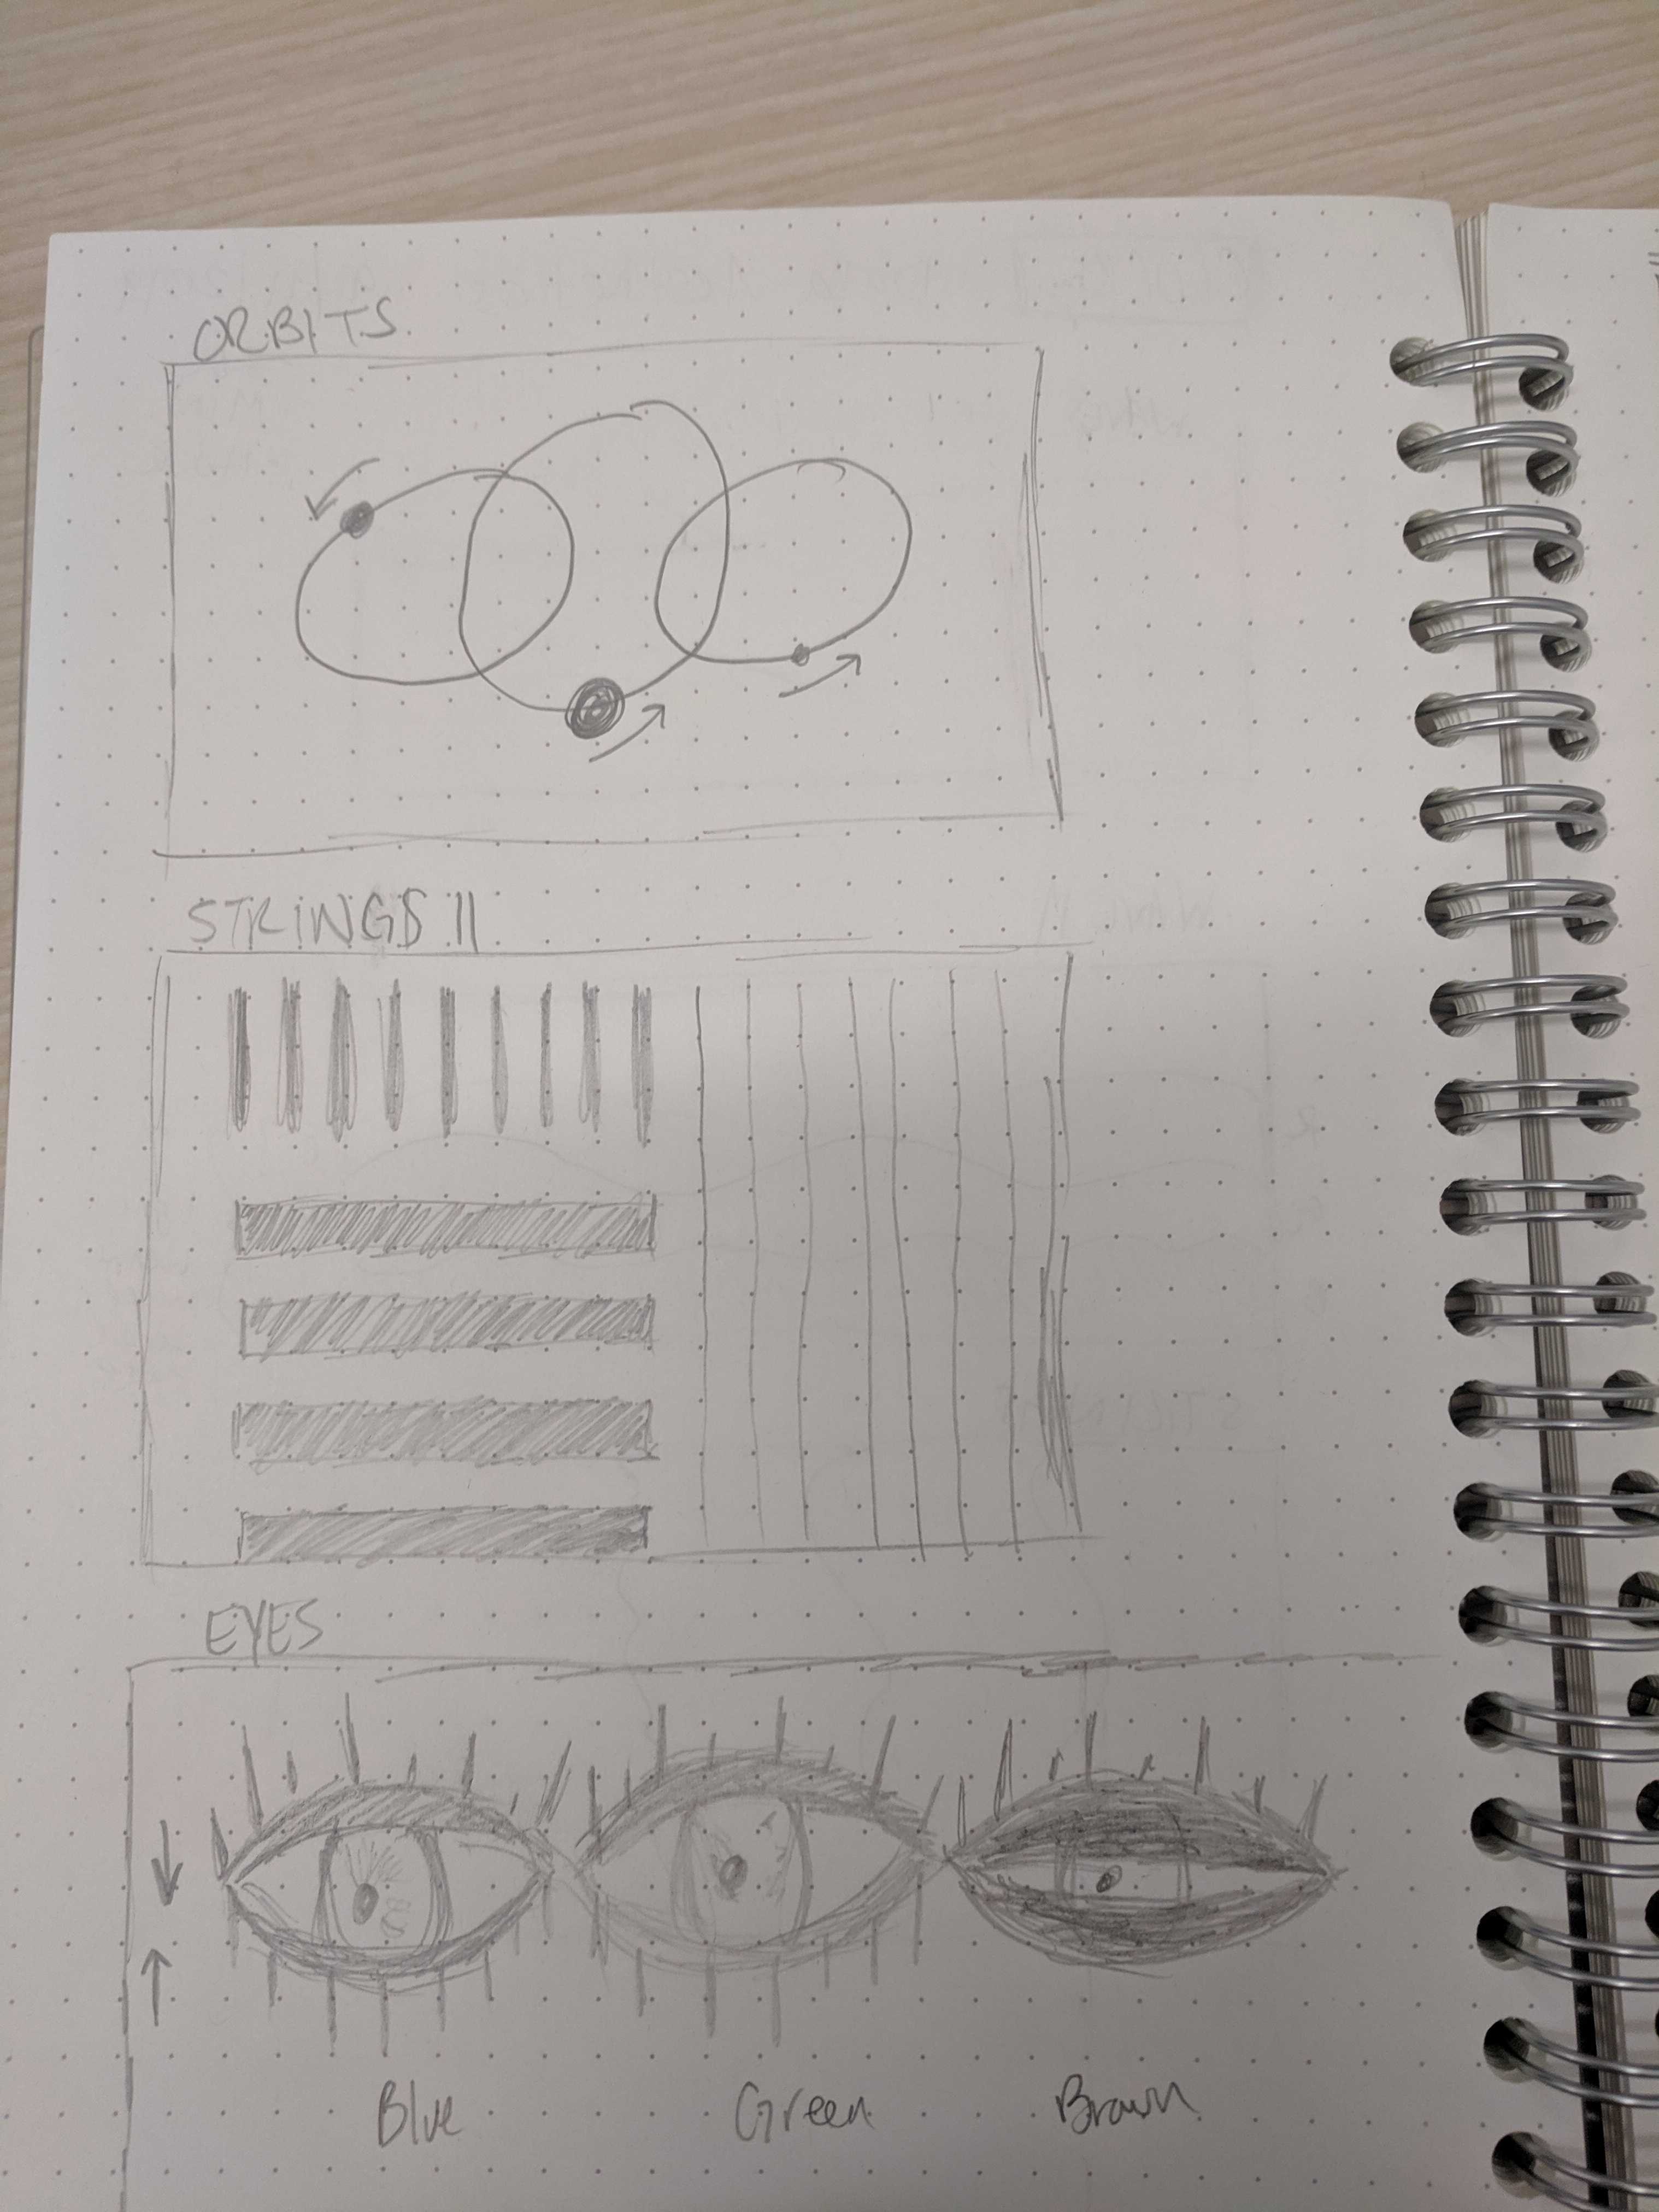 ORBITS
STRINGS II
EYES
Blue Green Brown